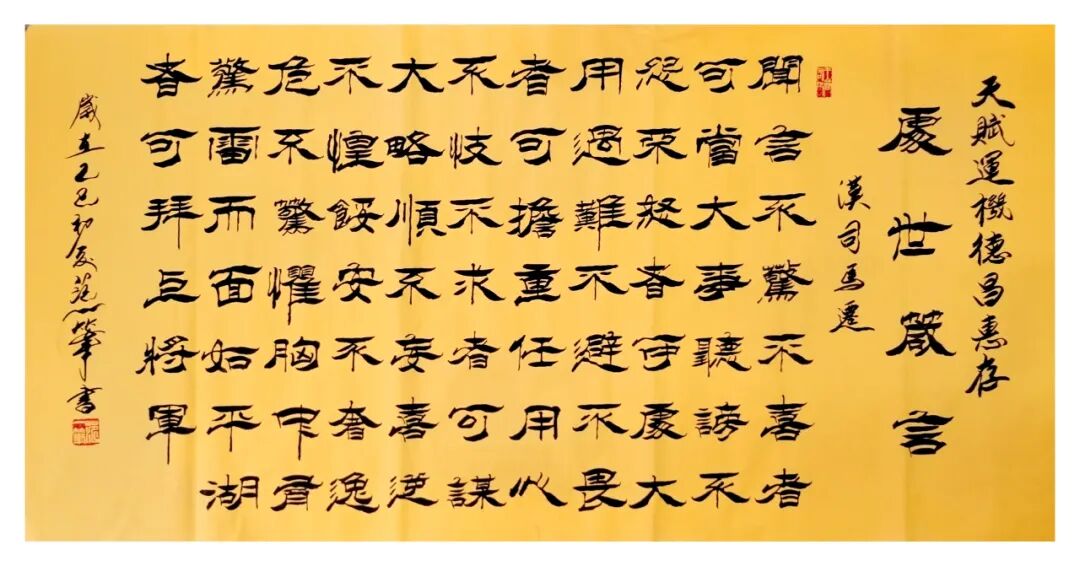 天賦運機德昌惠存
處世箴言
漢司馬遷
聞言不驚不喜者
可當大事聽謗不
怨不怒者可處大
用遇難不避不畏
者可擔重任用以
不忮不求者可謀
大略順不妄喜逆
不惶餒安不奢逸
危不驚懼胸中有
驚雷而面如平湖
者可拜上將軍
歲在乙巳初夏書